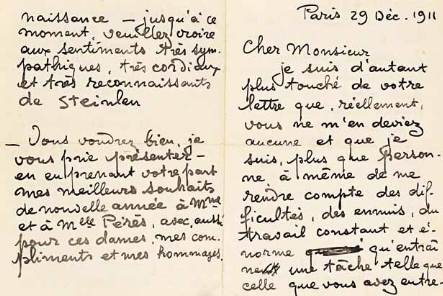 Paris 29 Déc. 1911
Cher Monsieur
je suis d'autant
plus touché de votre
lettre que, réellement,
vous ne m'en deviez
aucune et que je
suis, plus que person-
ne à même de me
rendre compte des dif-
ficultés, des ennuis, du
travail constant et é-
norme qu'entraî
ne une tâche telle que
celle que vous avez entre-
naissance – jusqu'à ce
moment, veuillez croire
aux sentiments très sym-
pathiques, très cordiaux
et très reconnaissants
de Steinlen
– Vous voudrez bien, je
vous prie présenter –
en en prenant votre part
mes meilleurs souhaits
de nouvelle année à Mme
et à Melle Pérès, avec, aussi
pour ces dames, mes com-
pliments et mes hommages.